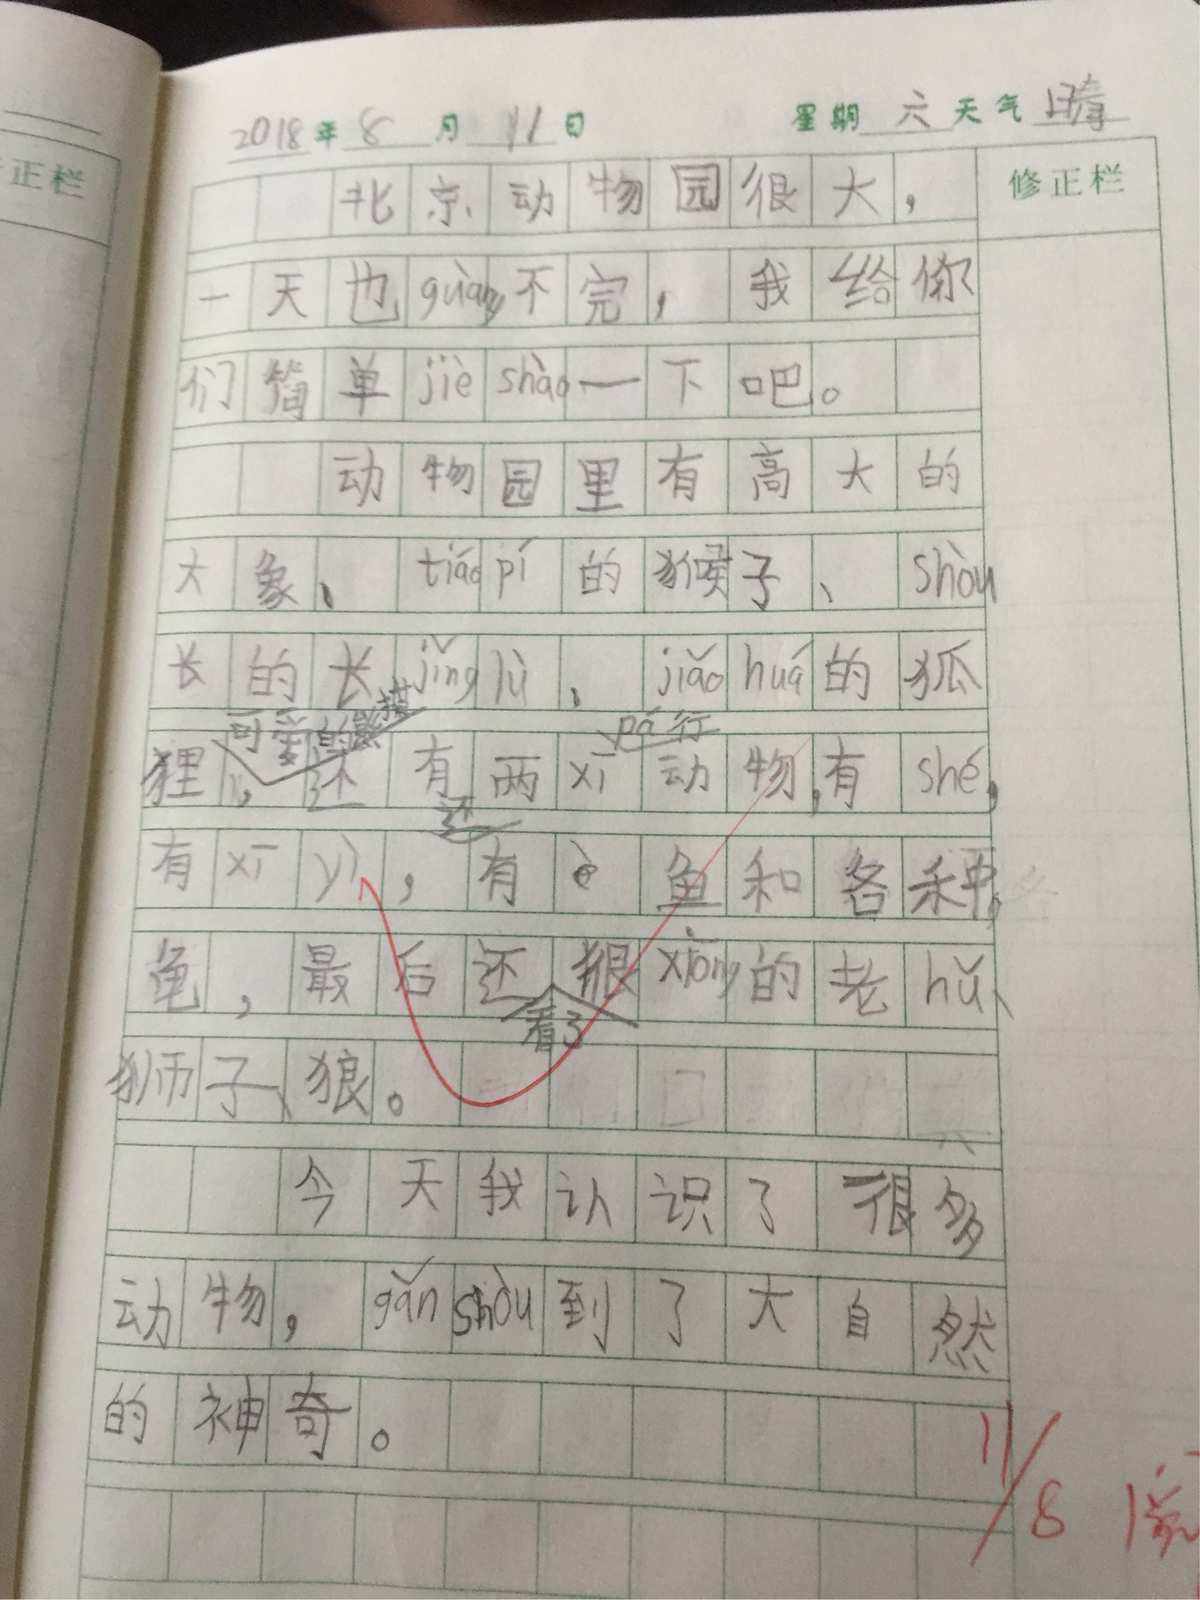 正栏
2018年8月11日 星期六天气晴
修正栏
北京动物园很大，
一天也guàng不完，我给你
们简单jiè shào一下吧。
动物园里有高大的
大象、tiáo pí的猴子、shòu
长的长jǐng lù、jiǎo huá的狐
可爱的熊猫
pá行
狸，还有两xī动物，有shé，
还
有xī yì，有è鱼和各种
龟，最后还狠xiōng的老hǔ、
看了
狮子、狼。
今天我认识了很多
动物，gǎn shòu到了大自然
的神奇。
11/8